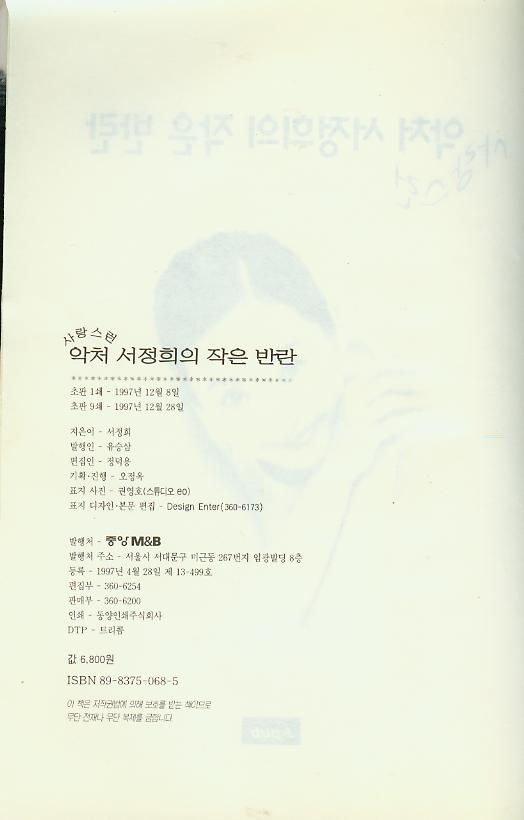 사랑스런
악처 서정희의 작은 반란
초판 1쇄 - 1997년 12월 8일
초판 9쇄 - 1997년 12월 28일
지은이 - 서정희
발행인 - 유승삼
편집인 - 정덕용
기획·진행 - 오정옥
표지 사진 - 권영호(스튜디오 eo)
표지 디자인·본문 편집 - Design Enter(360-6173)
발행처 - 중앙 M&B
발행처 주소 - 서울시 서대문구 미근동 267번지 임광빌딩 8층
등록 - 1997년 4월 28일 제 13-499호
편집부 - 360-6254
판매부 - 360-6200
인쇄 - 동양인쇄주식회사
DTP - 트리콤
값 6,800원
ISBN 89-8375-068-5
이 책은 저작권법에 의해 보호를 받는 책이므로
무단 전재나 무단 복제를 금합니다.